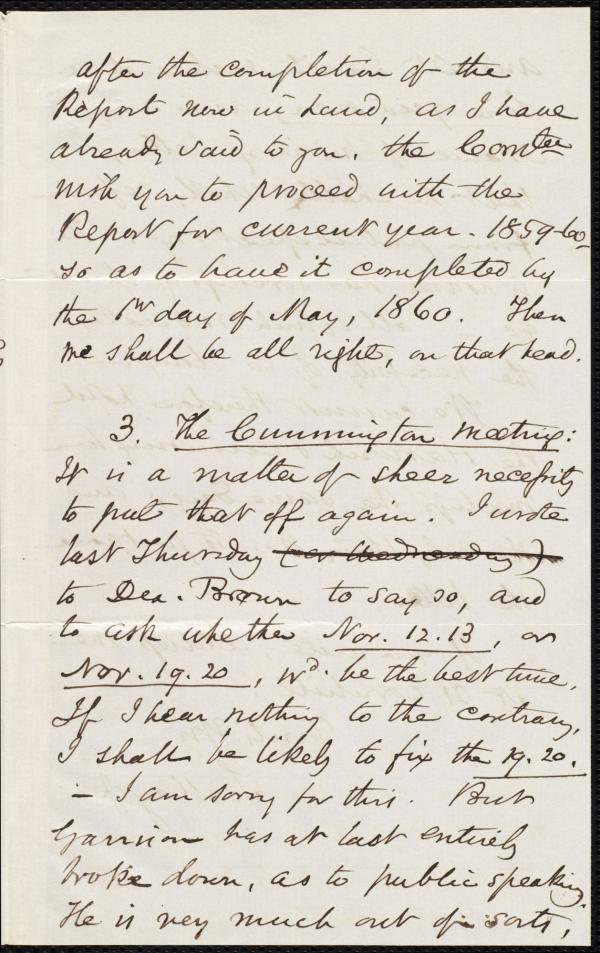 after the completion of the
Report now in hand, as I have
already said to you, the Comtee
wish you to proceed with the
Report for current year. 1859-60,
so as to have it completed by
the 1st day of May, 1860. Then
we shall be all right, on that head.
3. The Cummington meeting:
It is a matter of sheer necessity
to put that off again. I wrote
last Thursday (or Wednesday)
to Dea. Brown to say so, and
to ask whether Nov. 12.13, or
Nov. 19.20, wd. be the best time.
If I hear nothing to the contrary,
I shall be likely to fix the 19.20.
— I am sorry for this. But
Garrison has at last entirely
broke down, as to public speaking.
He is very much out of sorts,